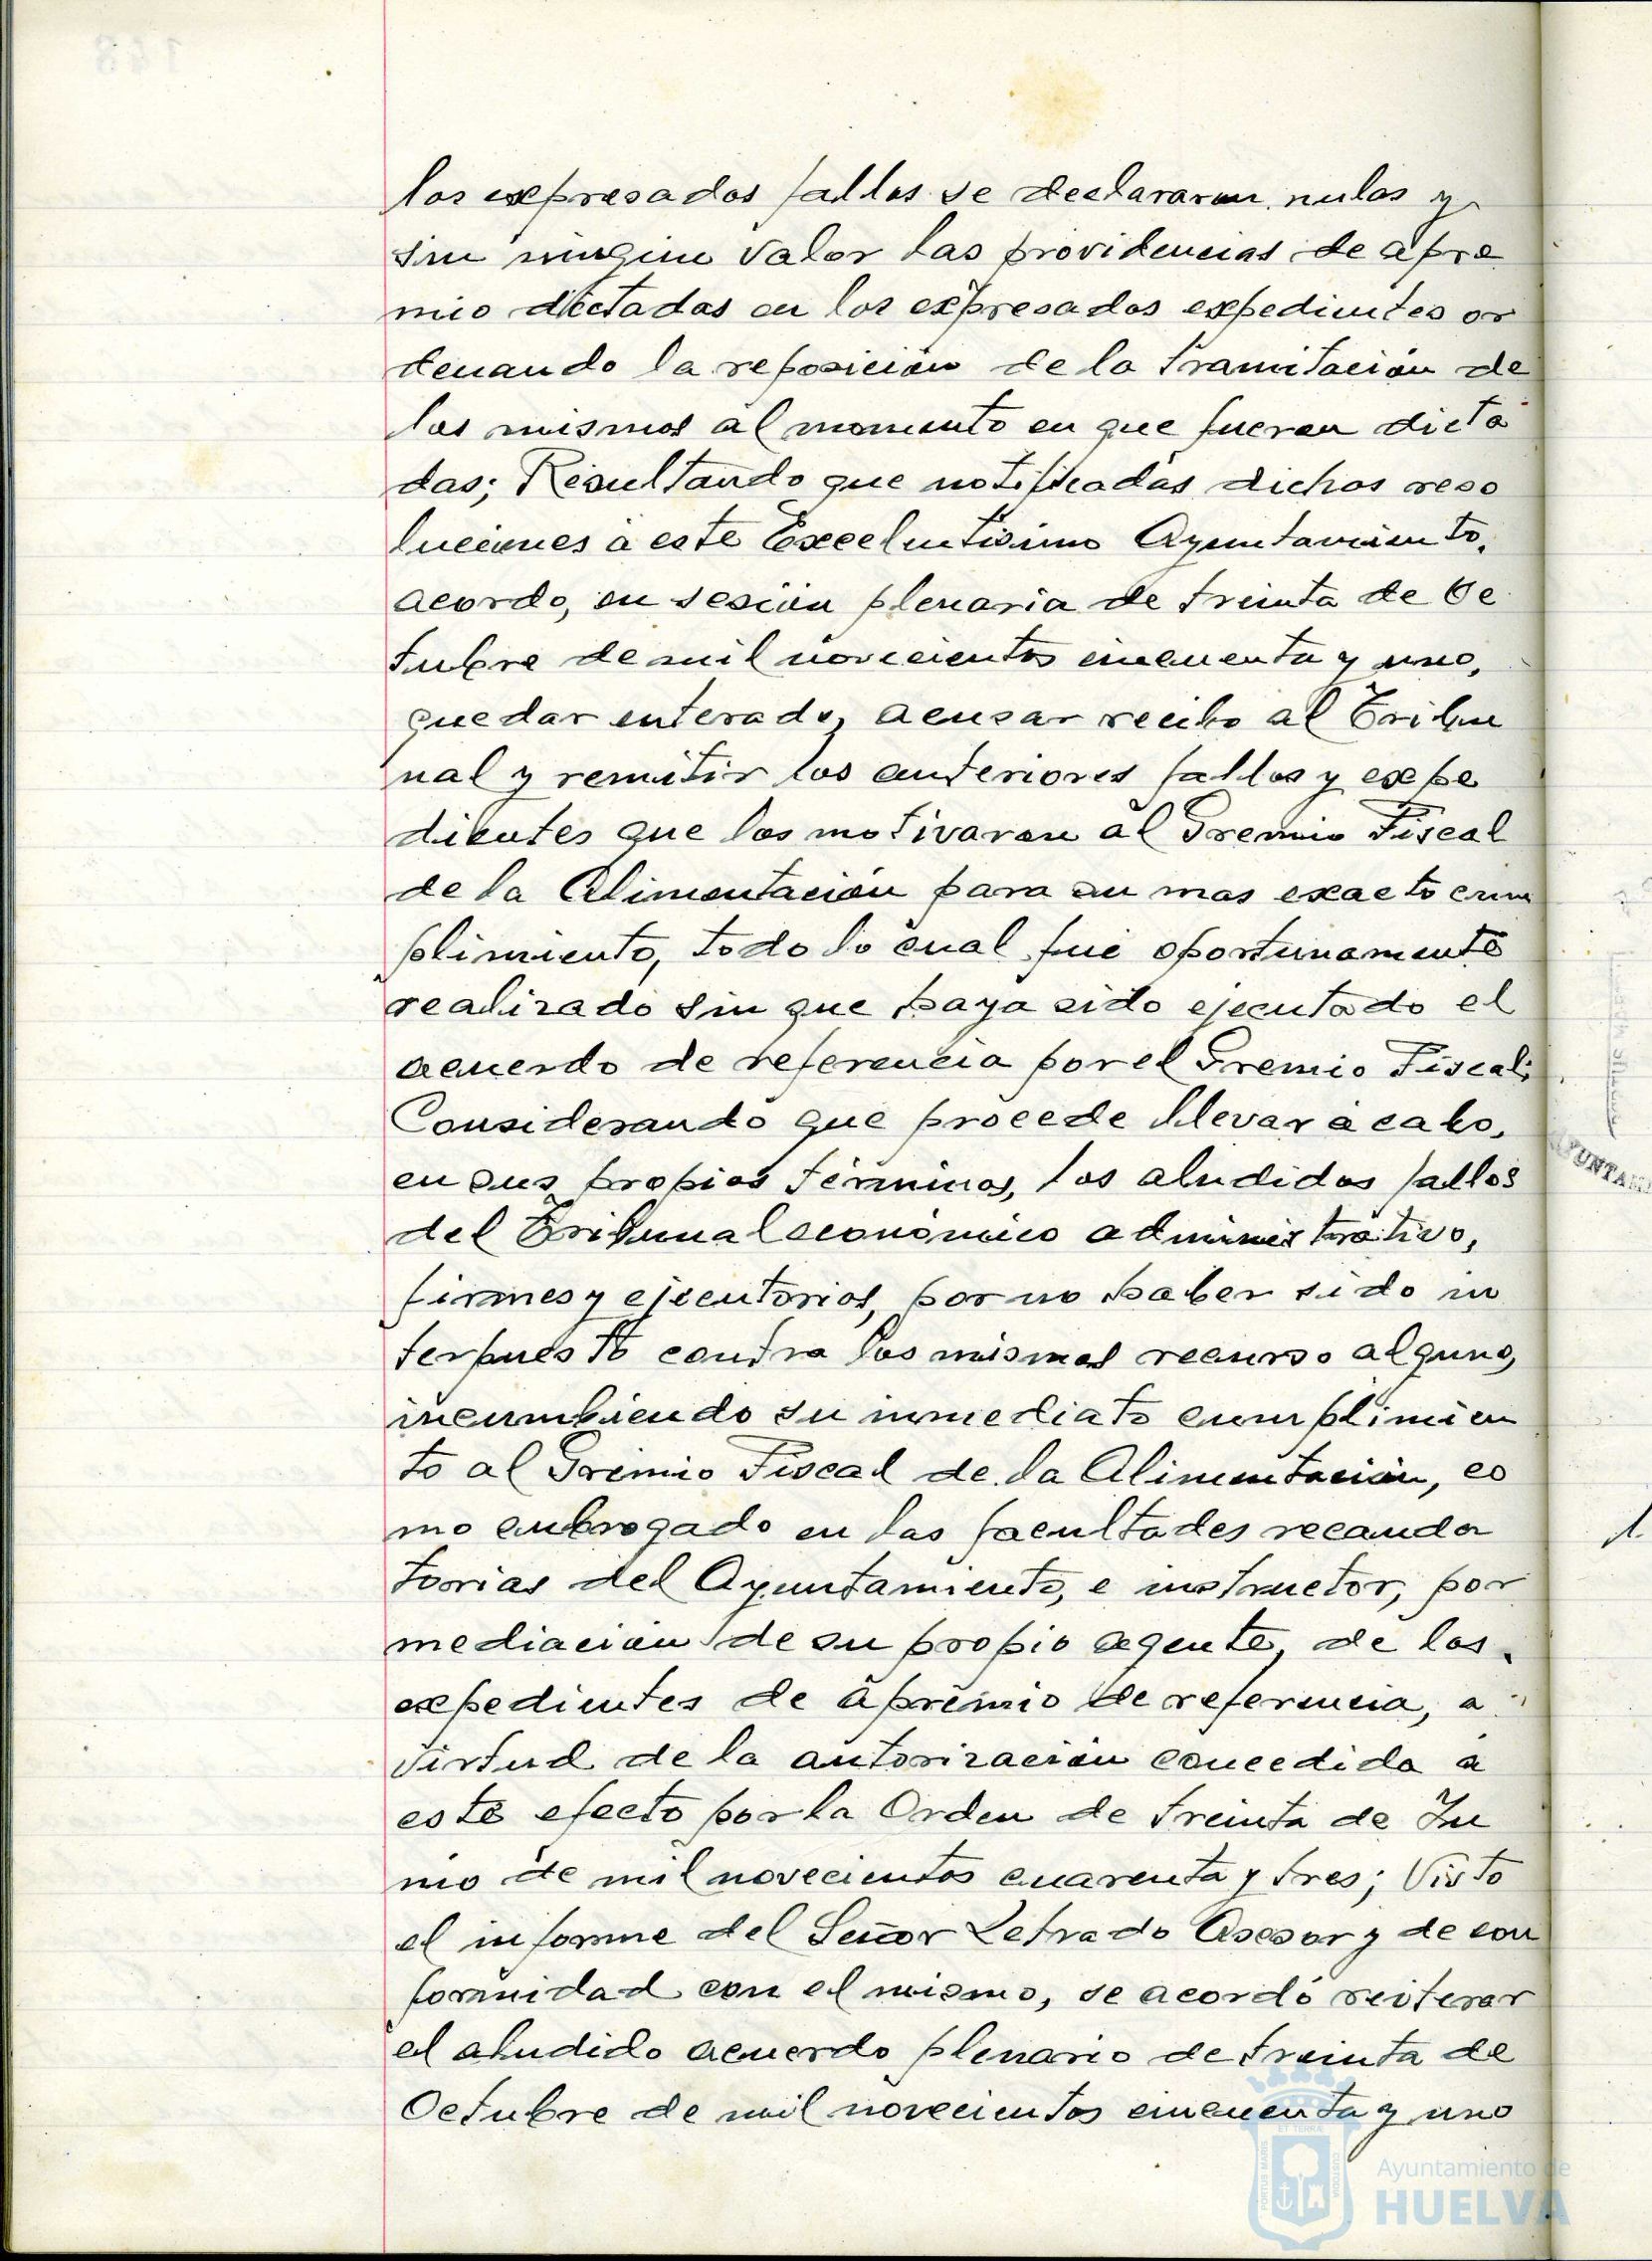 los expresados fallos se declararon nulos y
sin ningun valor las providencias de apre
mio dictadas en los expresados expedientes or
denando la reposición de la tramitación de
los mismos al momento en que fueron dicta
das; Resultando que notificadas dichas reso
luciones a este Excelentisimo Ayuntamiento,
acordo, en sesión plenaria de treinta de Oc
tubre de mil novecientos cincuenta y uno,
quedar enterado, acusar recibo al Tribu
nal y remitir los anteriores fallos y expe
dientes que los motivaron al Gremio Fiscal
de la Alimentación para su mas exacto cum
plimiento, todo lo cual fué oportunamente
realizado sin que haya sido ejecutado el
acuerdo de referencia por el Gremio Fiscal;
Considerando que procede llevar a cabo,
en sus propios términos, los aludidos fallos
del Tribunal económico administrativo,
firmes y ejecutorios, por no haber sido in
terpuesto contra los mismos recurso alguno,
incumbiendo su inmediato cumplimien
to al Gremio Fiscal de la Alimentación, co
mo subrogado en las facultades recauda
torias del Ayuntamiento, e instructor, por
mediacion de su propio agente, de los
expedientes de apremio de referencia, a
virtud de la autorización concedida a
este efecto por la Orden de treinta de Ju
nio de mil novecientos cuarenta y tres; Visto
el informe del Señor Letrado Asesor y de con
formidad con el mismo, se acordó reiterar
el aludido acuerdo plenario de treinta de
Octubre de mil novecientos cincuenta y uno
148
AYUNTAMI
PORTUS MARIS
ET TERRAE
CUSTODIA
Ayuntamiento de
HUELVA